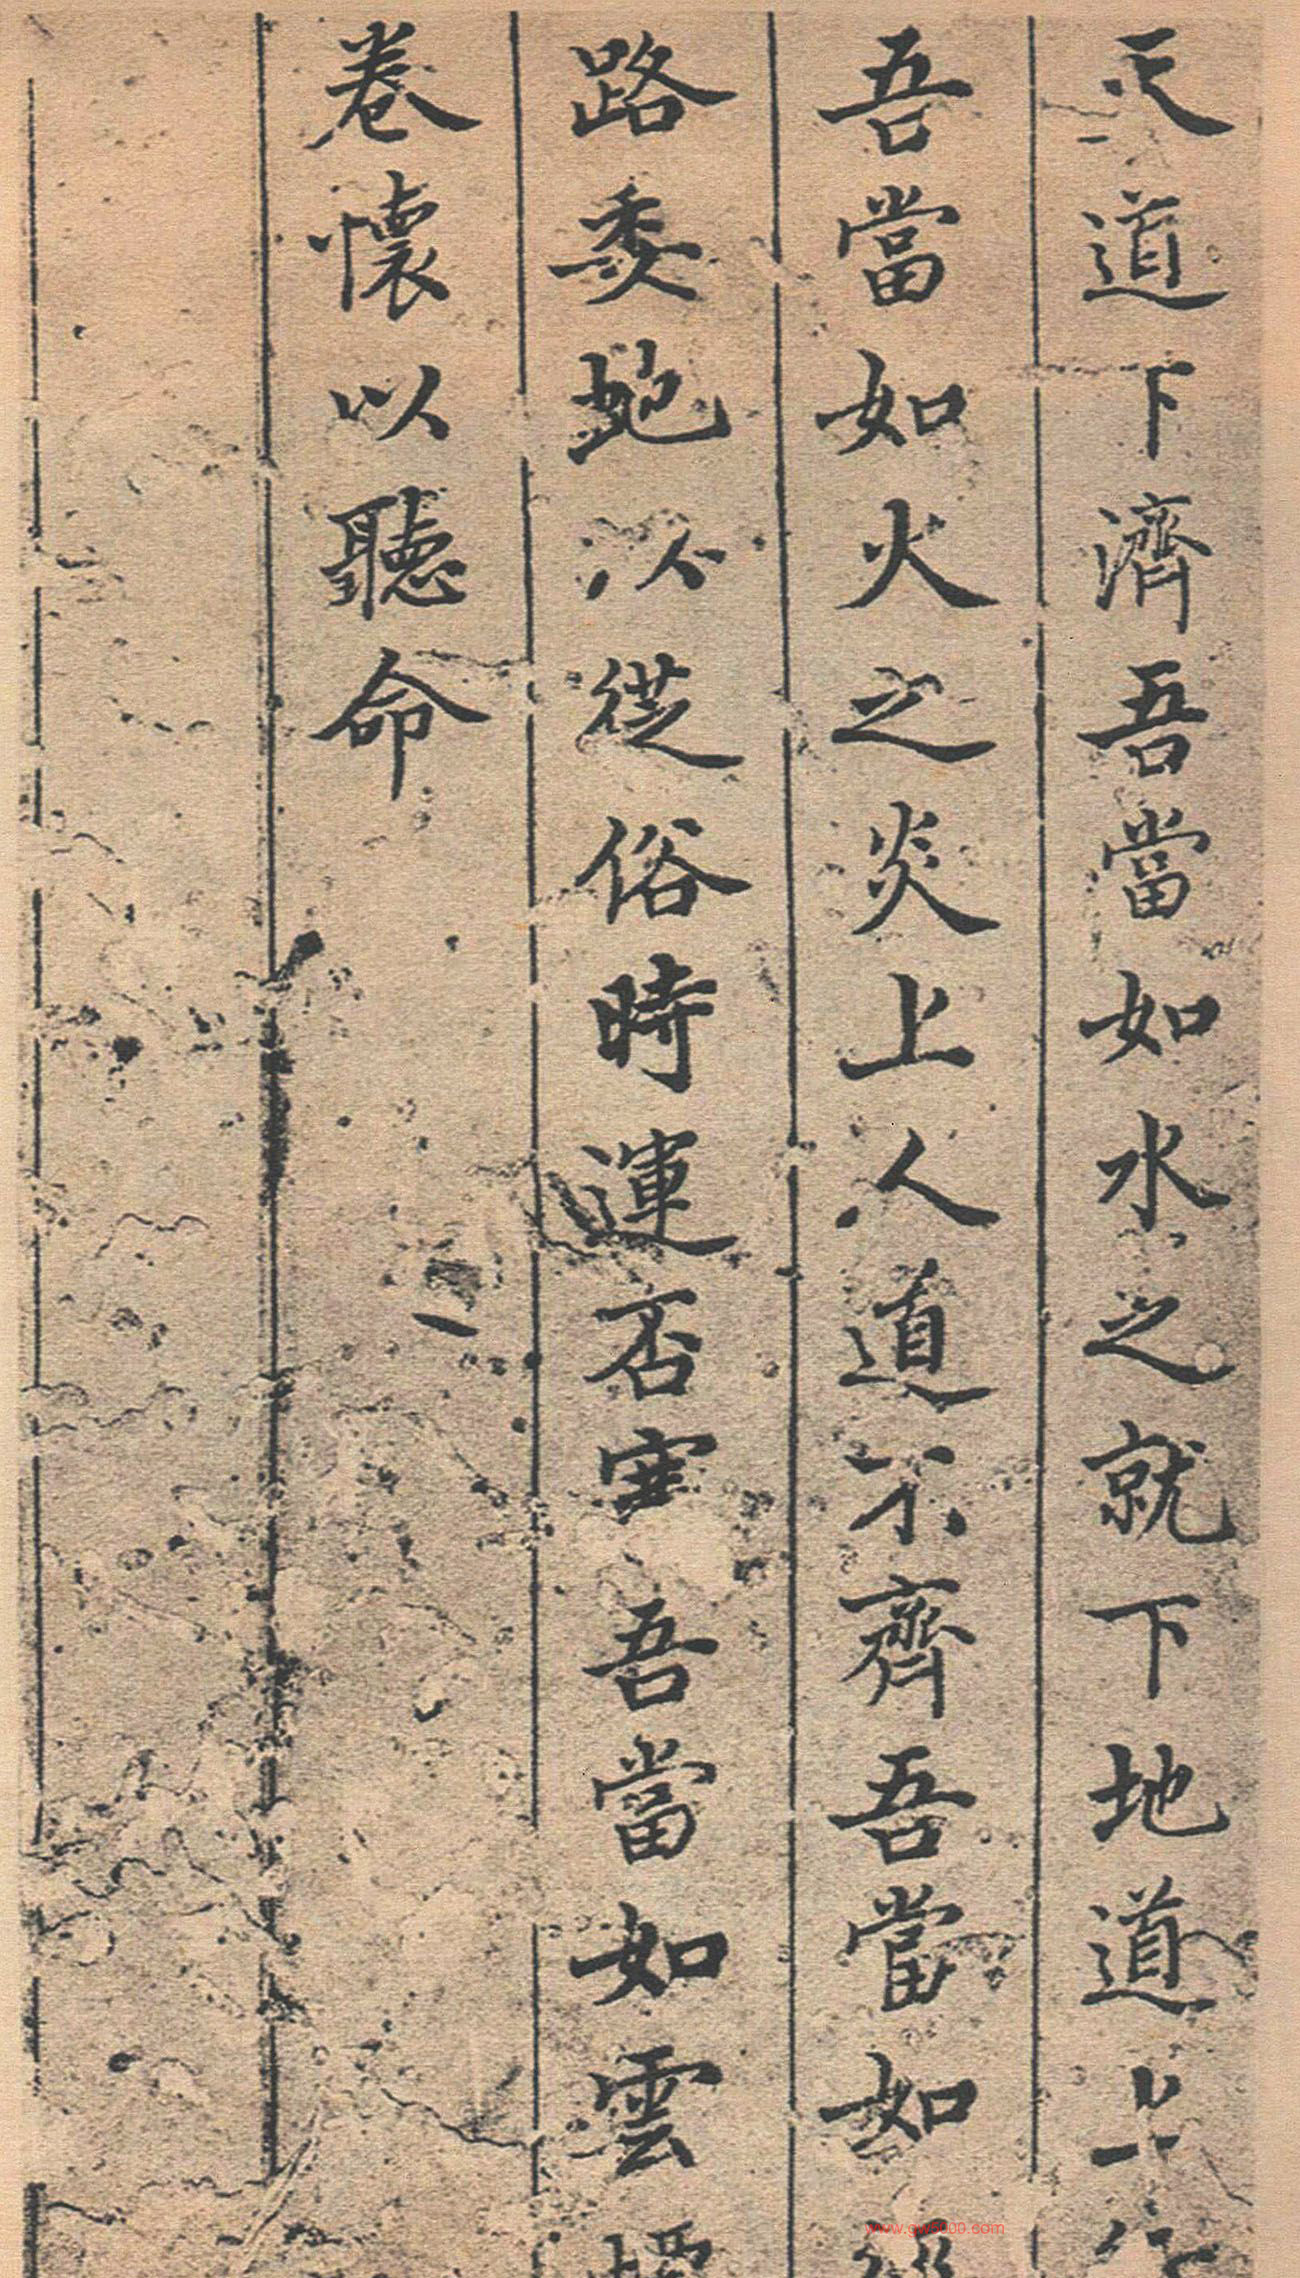 天道下濟吾當如水之就下地道上
吾當如火之炎上人道不齊吾當如
路委虵以從俗時運否塞吾當如雲
卷懷以聽命
www.gw5000.com